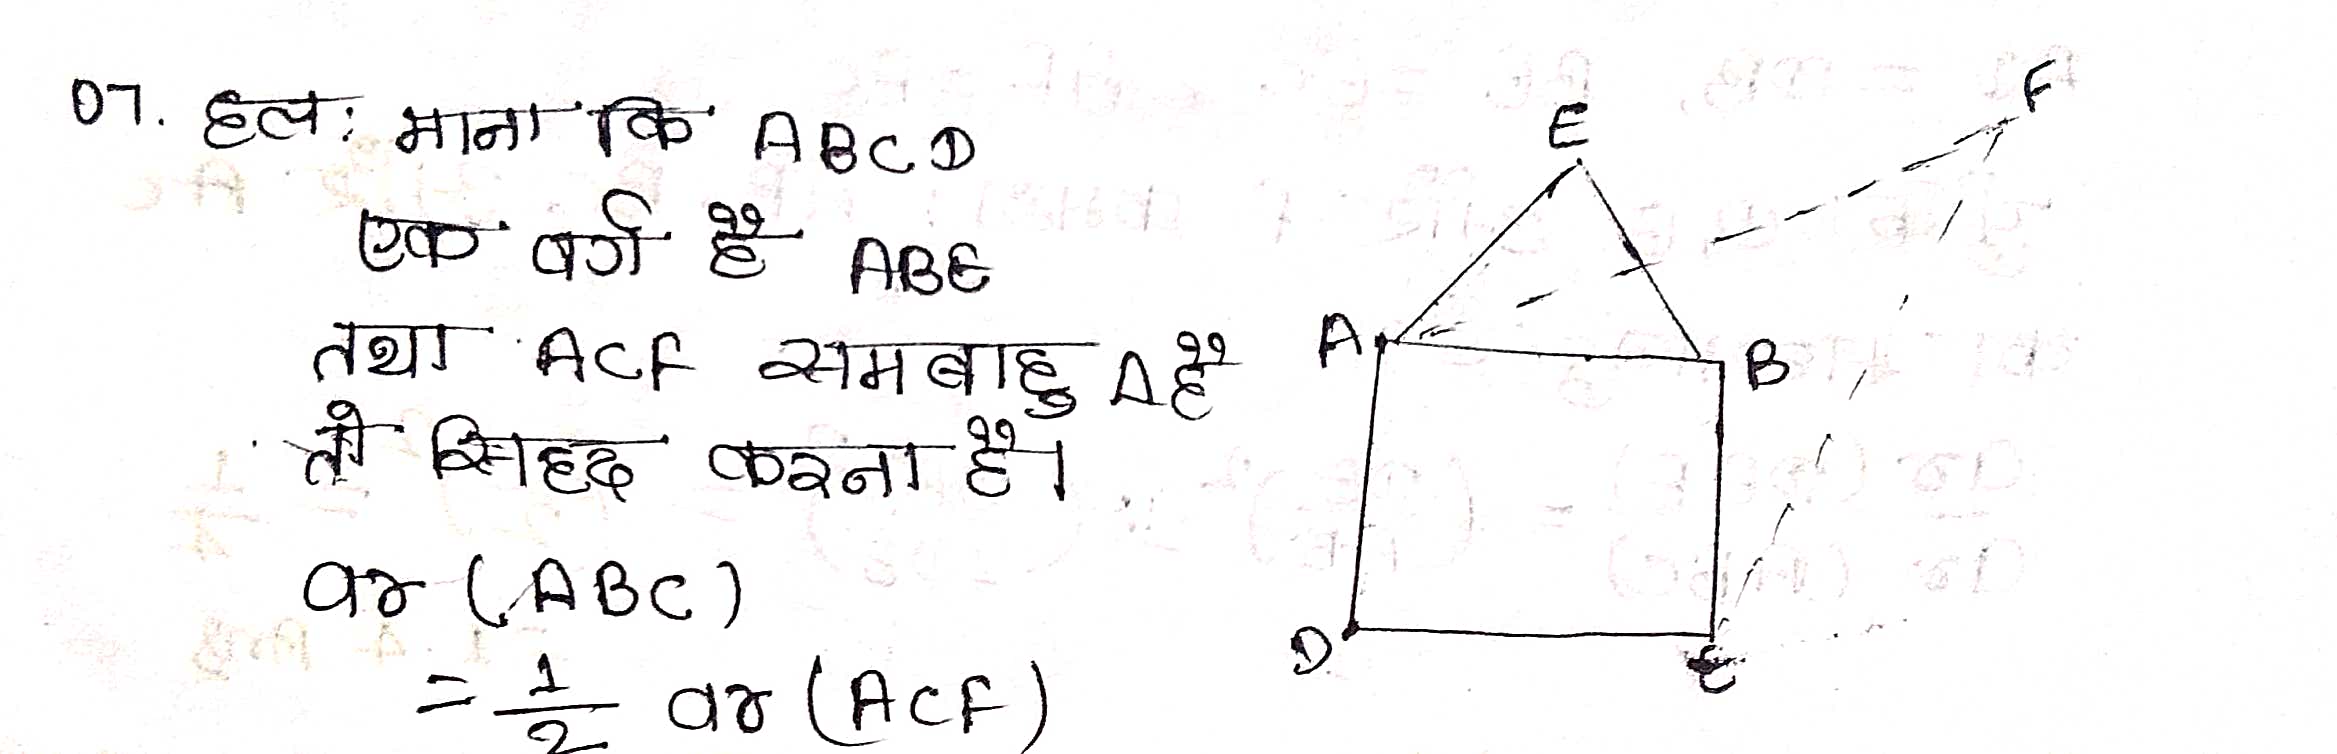 07. हल: माना कि ABCD
एक वर्ग है ABE
तथा ACF समबाहु Δ है
तो सिद्ध करना है।
ar (ABC)
= 1/2 ar (ACF)
E
F
A
B
D